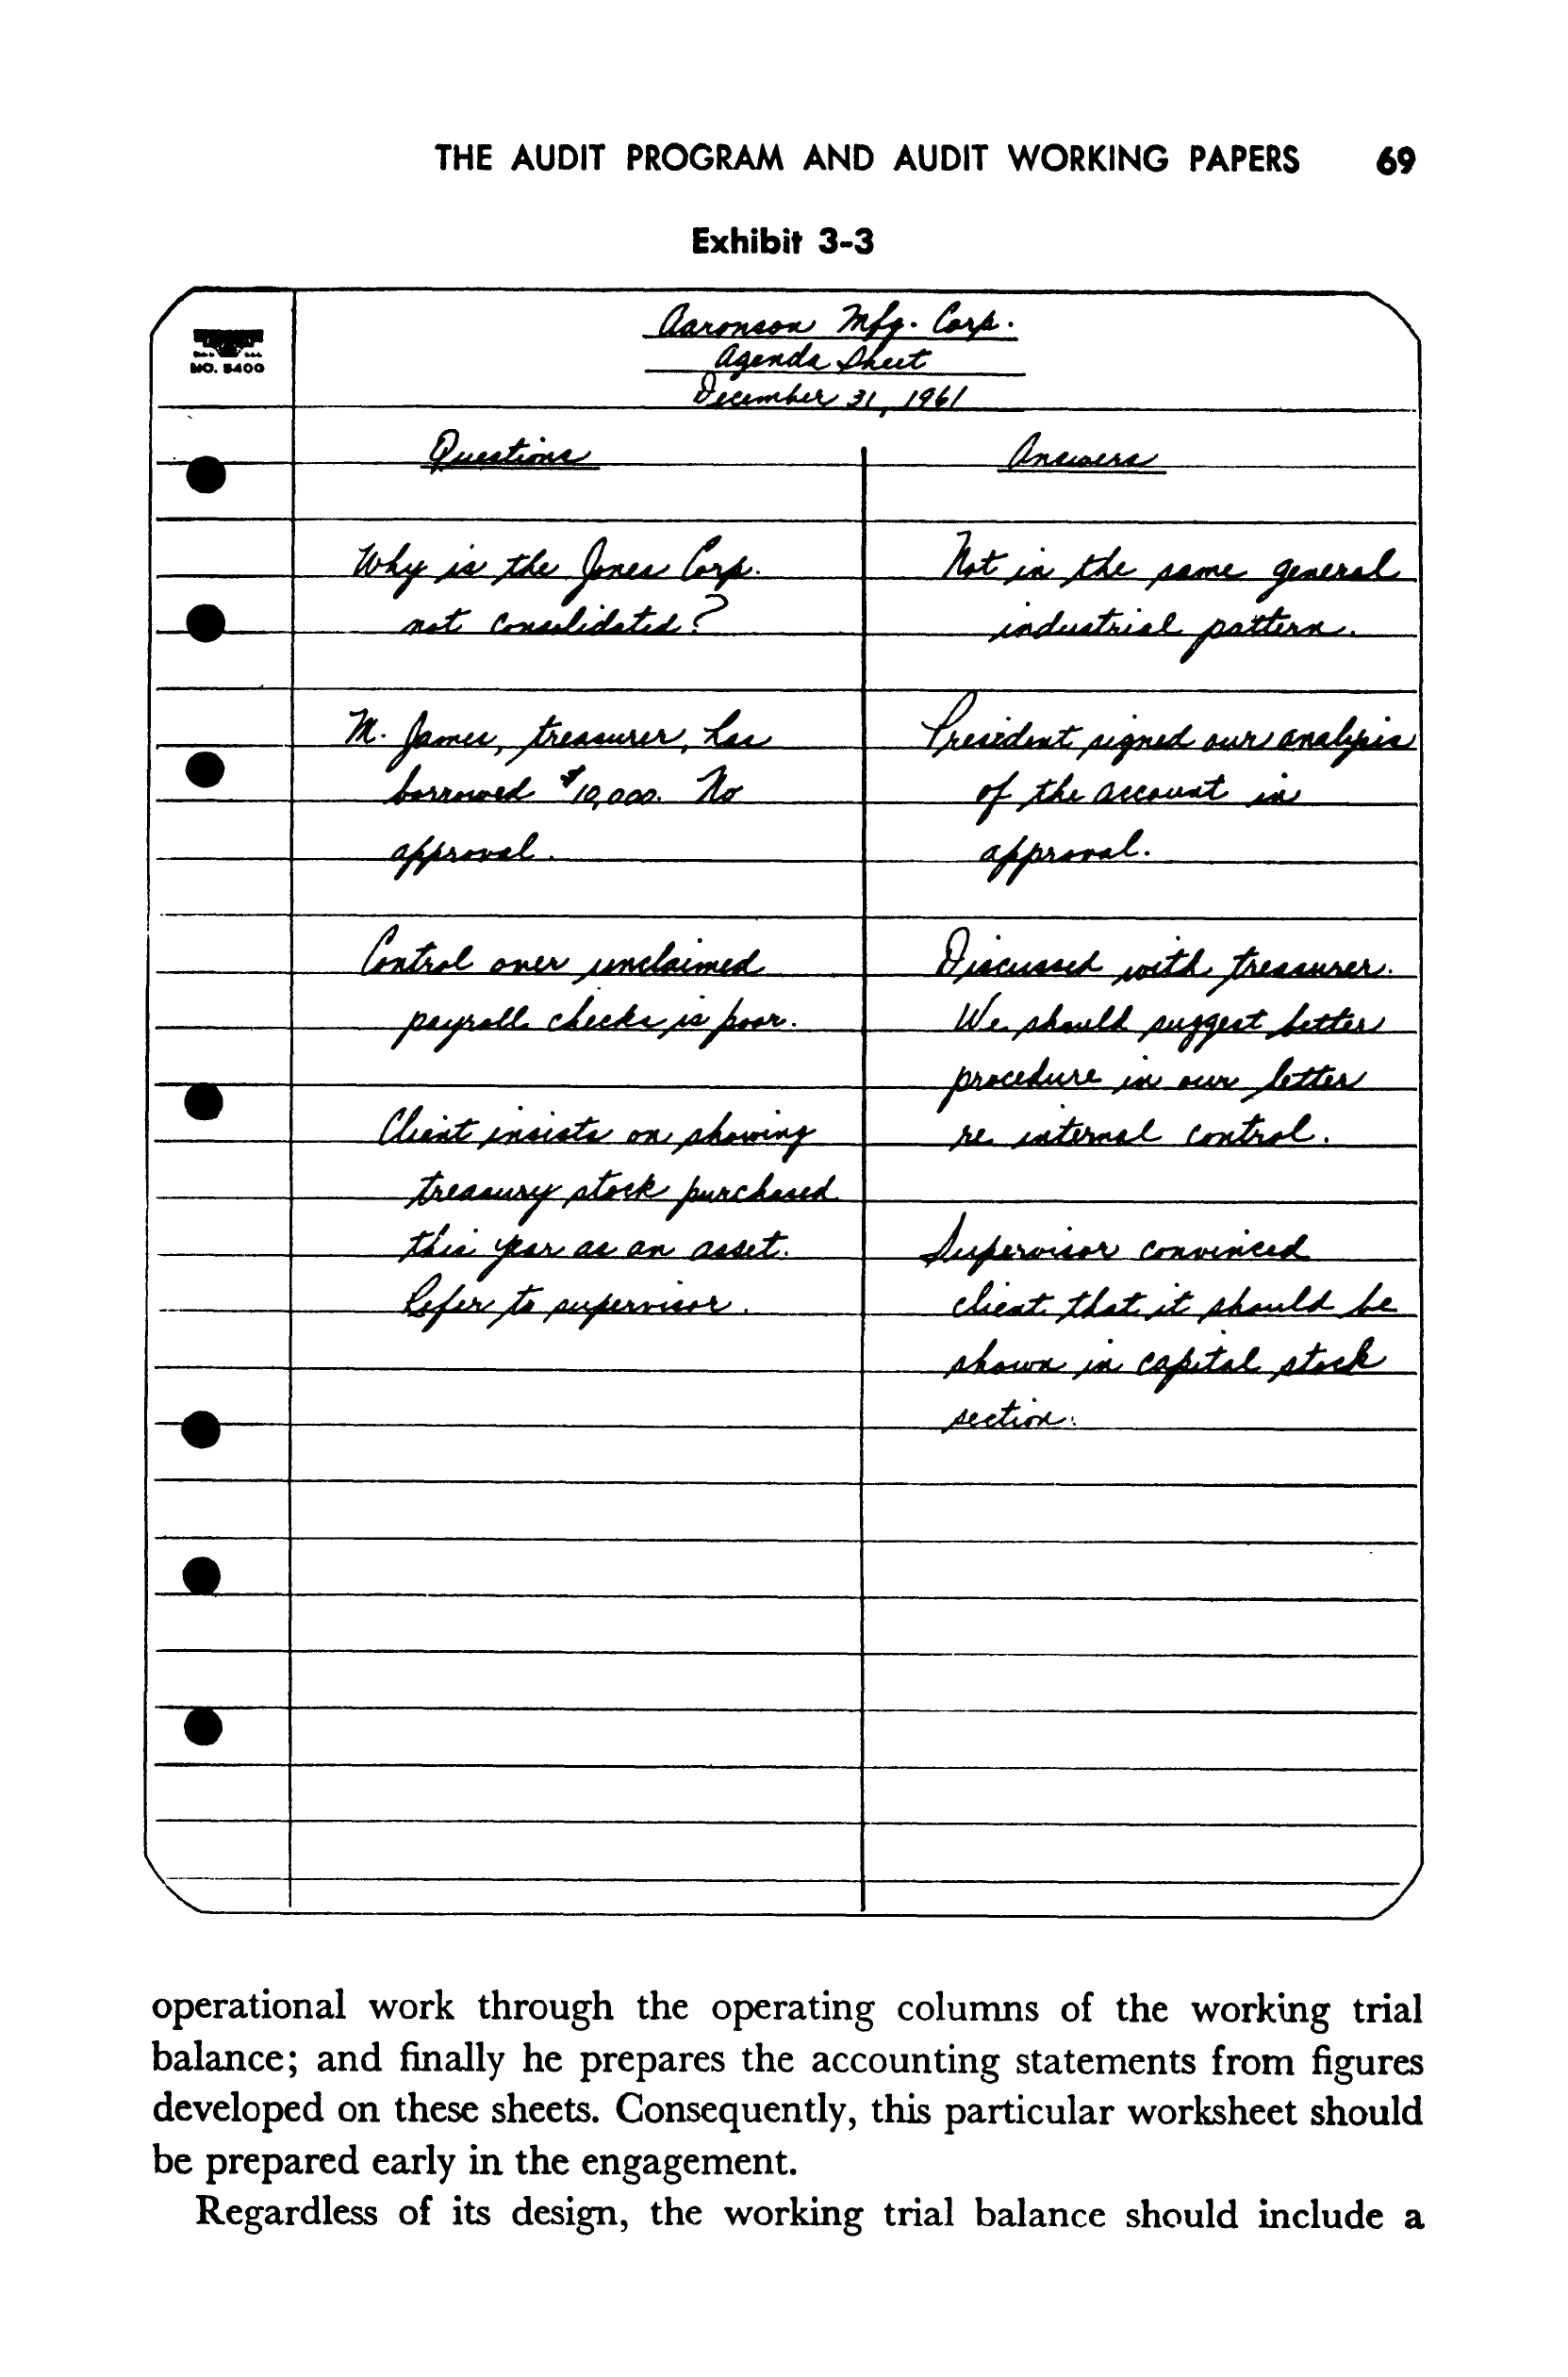 THE AUDIT PROGRAM AND AUDIT WORKING PAPERS 69
Exhibit 3-3
NO. 5400
Aaronson Mfg. Corp.
Agenda Sheet
December 31, 1961
Questions
Answers
Why is the Jones Corp.
not consolidated?
Not in the same general
industrial pattern.
M. James, treasurer, has
borrowed $10,000. No
approval.
President signed our analysis
of the account in
approval.
Control over unclaimed
payroll checks is poor.
Discussed with treasurer.
We should suggest better
procedure in our letter
re internal control.
Client insists on showing
treasury stock purchased
this year as an asset.
Refer to supervisor.
Supervisor convinced
client that it should be
shown in capital stock
section.
operational work through the operating columns of the working trial
balance; and finally he prepares the accounting statements from figures
developed on these sheets. Consequently, this particular worksheet should
be prepared early in the engagement.
Regardless of its design, the working trial balance should include a